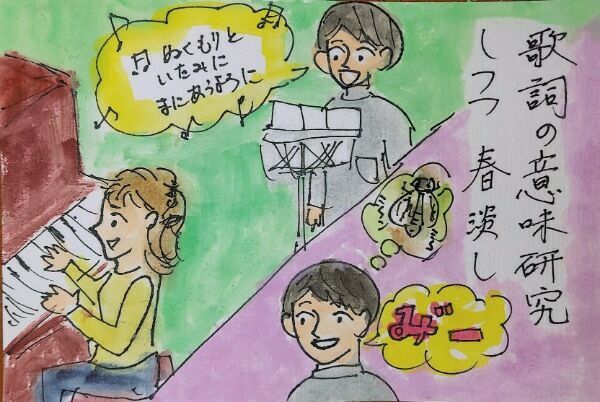 歌詞の意味研究
しつつ 春淡し
♬ ぬくもりと
いたみに
まにあうように
みーー